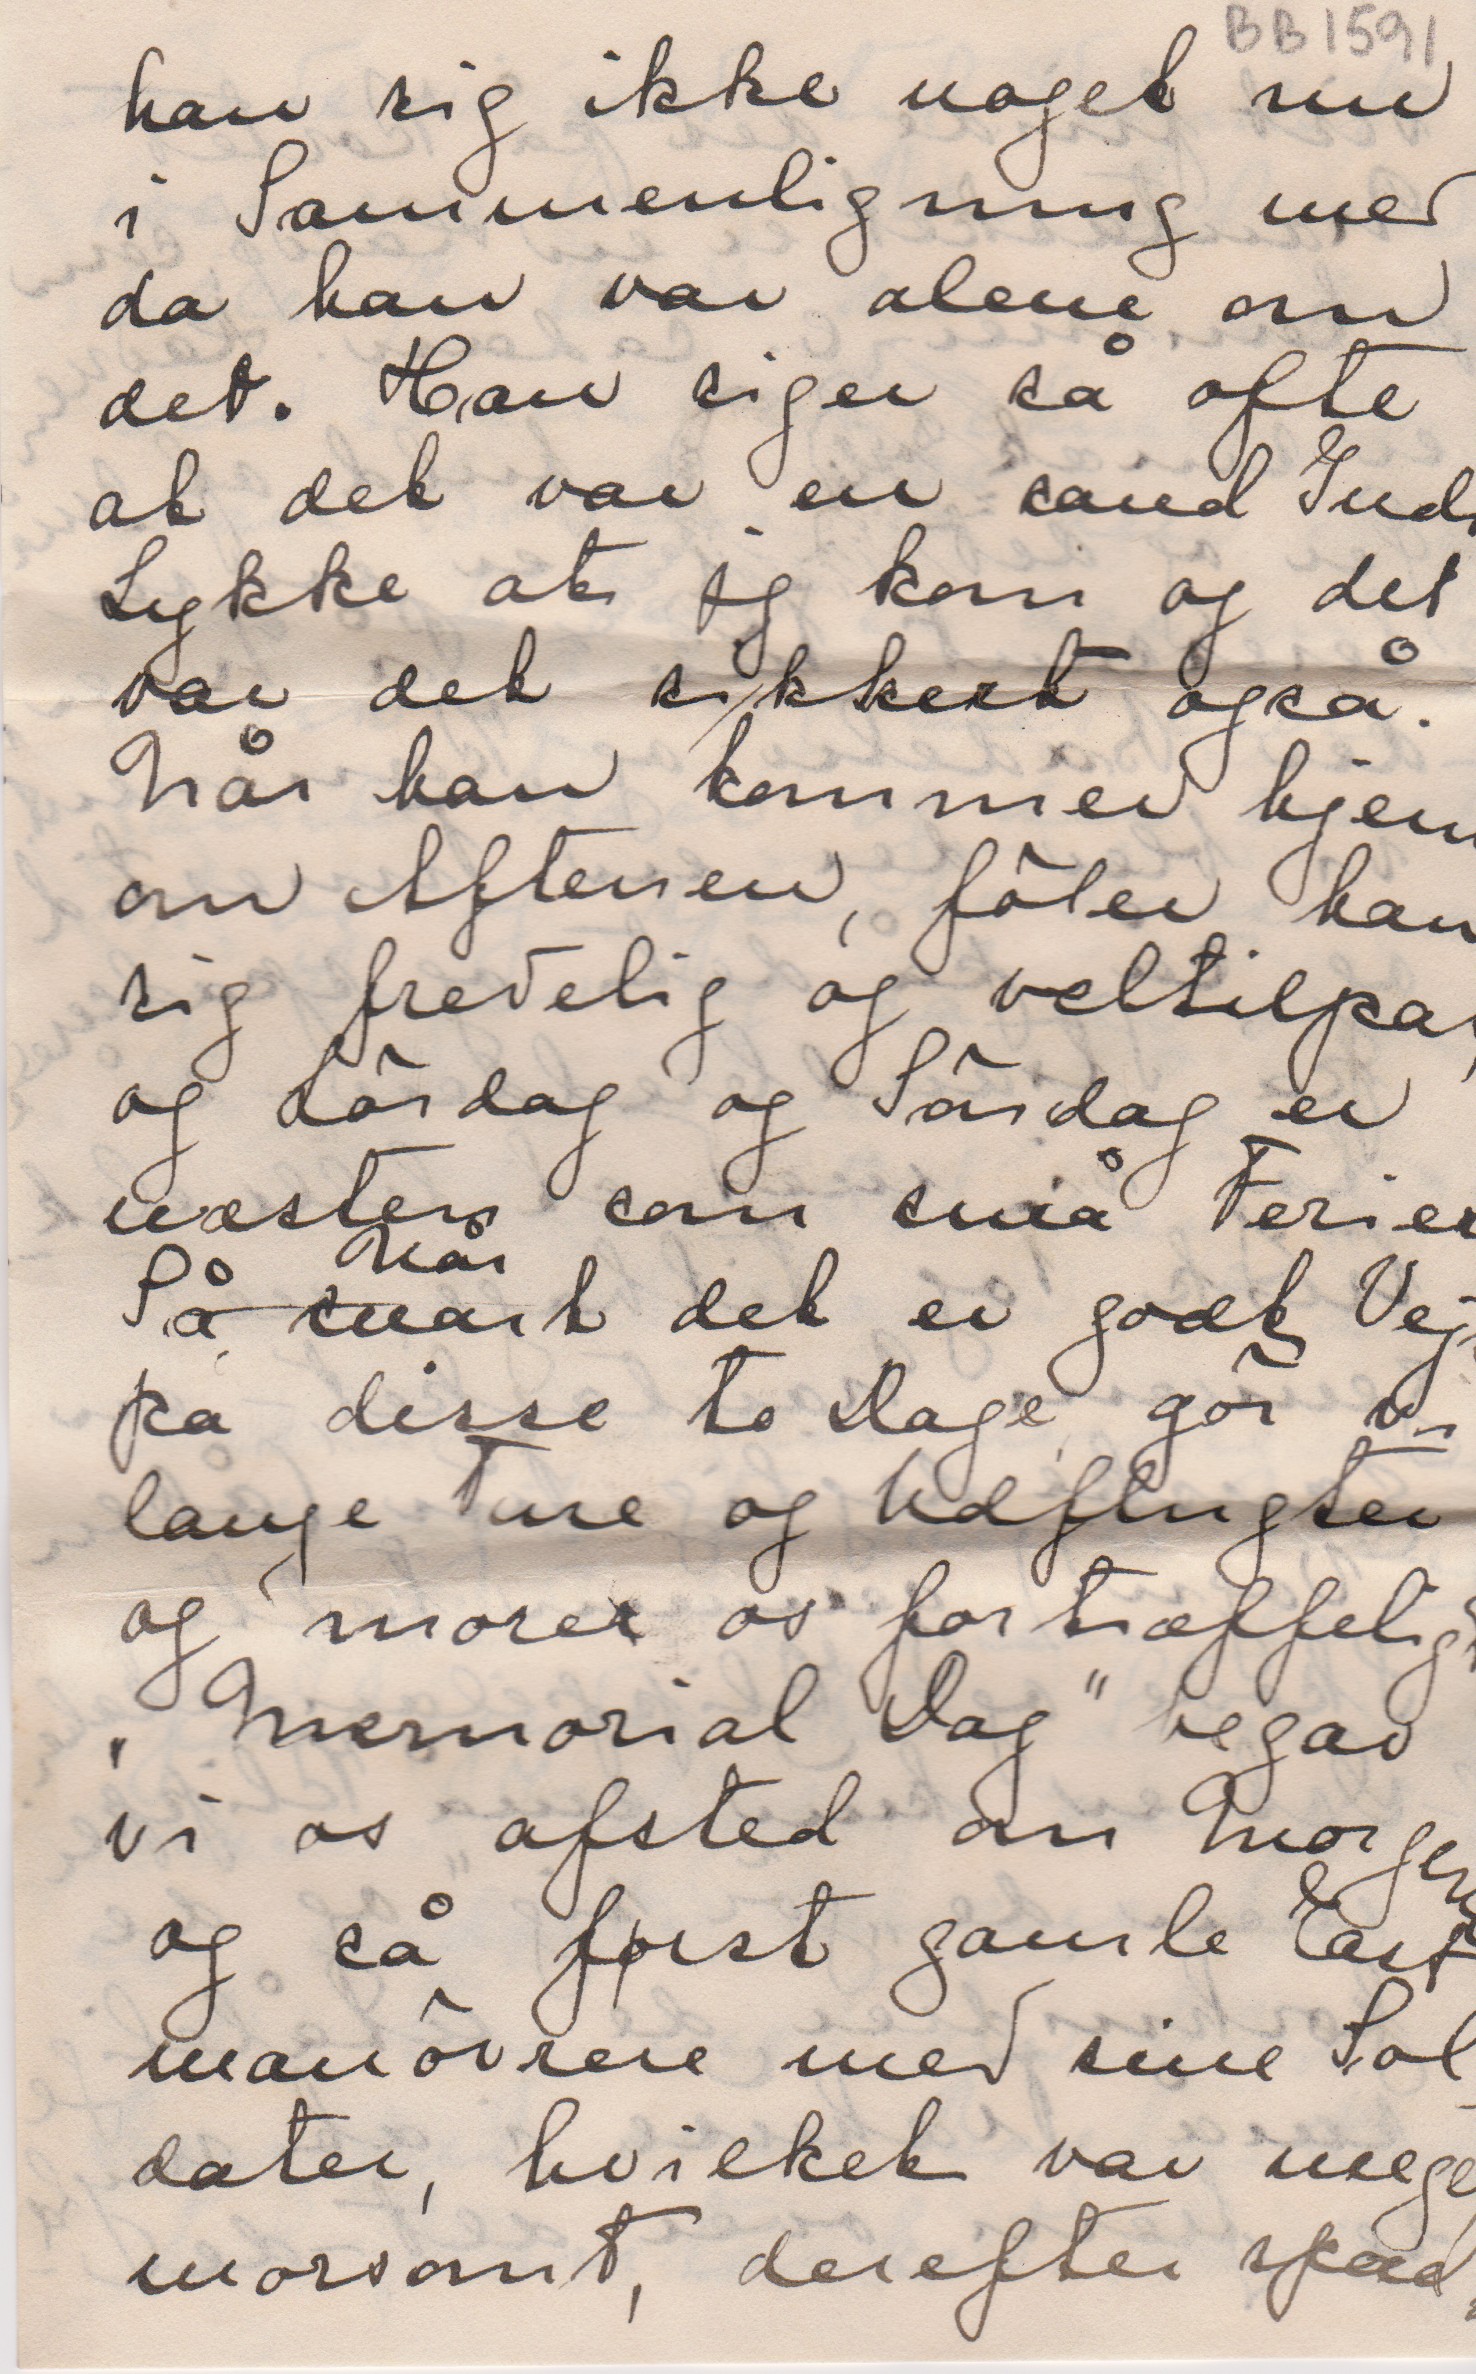 BB1591
han sig ikke noget nu
i Sammenligning med
da han var alene om
det. Han siger så ofte
at det var en sand Guds
Lykke at jeg kom og det
var det sikkert også.
Når han kommer hjem
om Aftenen, föler han
sig fredelig og veltilpas,
og Lördag og Söndag er
næsten som små Ferier
Når
Så snart det er godt Vejr
på disse to Dage, gör vi
lange Ture og Udflugter
og morer os fortræffeligt
„Memorial Dag" begav
vi os afsted om Morgen
og så först gamle East
manövrere med sine Sol
dater, hvilket var meget
morsomt, derefter spad